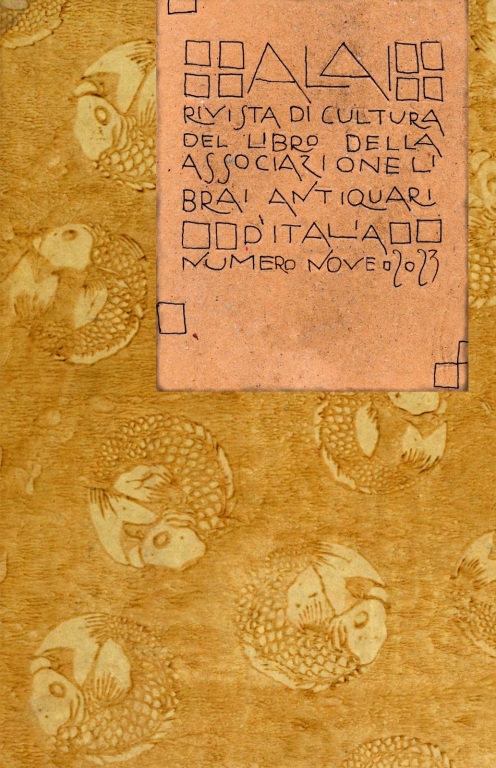 ALAI
RIVISTA DI CULTURA
DEL LIBRO DELLA
ASSOCIAZIONE LI
BRAI ANTIQUARI
D'ITALIA
NUMERO NOVE 2023